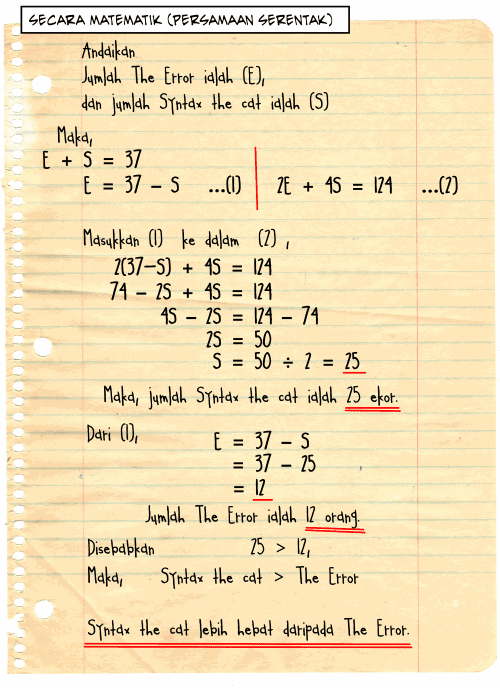 SECARA MATEMATIK (PERSAMAAN SERENTAK)
Andaikan
Jumlah The Error ialah (E),
dan jumlah Syntax the cat ialah (S)
Maka,
E + S = 37
E = 37 - S ...(1)
2E + 4S = 124 ...(2)
Masukkan (1) ke dalam (2),
2(37-S) + 4S = 124
74 - 2S + 4S = 124
4S - 2S = 124 - 74
2S = 50
S = 50 ÷ 2 = 25
Maka, jumlah Syntax the cat ialah 25 ekor.
Dari (1),
E = 37 - S
= 37 - 25
= 12
Jumlah The Error ialah 12 orang.
Disebabkan 25 > 12,
Maka, Syntax the cat > The Error
Syntax the cat lebih hebat daripada The Error.